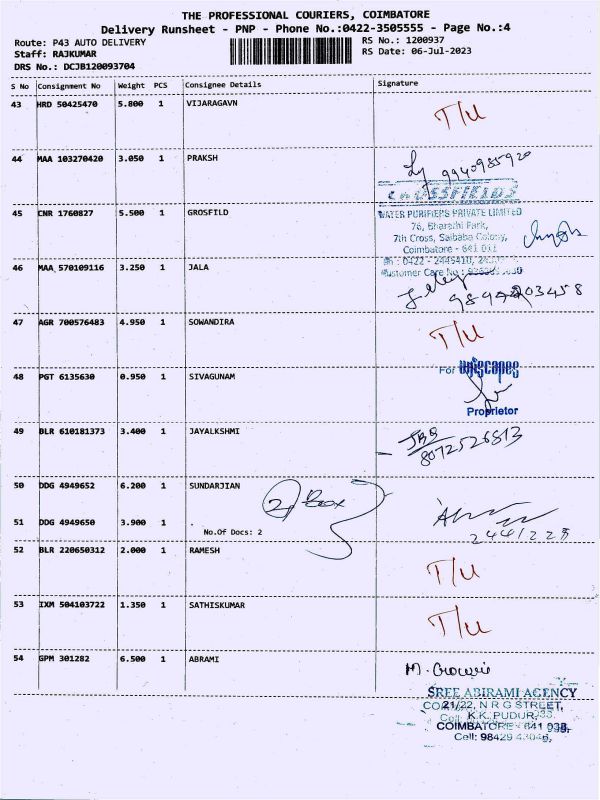 THE PROFESSIONAL COURIERS, COIMBATORE
Delivery Runsheet - PNP - Phone No.:0422-3505555 - Page No.:4
Route: P43 AUTO DELIVERY
RS No.: 1200937
Staff: RAJKUMAR
RS Date: 06-Jul-2023
DRS No.: DCJB120093704
S No Consignment No Weight PCS Consignee Details Signature
43 HRD 50425470 5.800 1 VIJARAGAVN
T/U
44 MAA 103270420 3.050 1 PRAKSH
9940985920
CROSSFIELDS
45 CNR 1760827 5.500 1 GROSFILD
WATER PURIFIERS PRIVATE LIMITED
76, Bharathi Park,
7th Cross, Saibaba Colony,
Coimbatore - 641 011
Ph : 0422 - 2445410,
Customer Care No :
46 MAA 570109116 3.250 1 JALA
47 AGR 700576483 4.950 1 SOWANDIRA
T/U
48 PGT 6135630 0.950 1 SIVAGUNAM
For uniscapes
Proprietor
49 BLR 610181373 3.400 1 JAYALKSHMI
8072526813
50 DDG 4949652 6.200 1 SUNDARJIAN
2 Box
51 DDG 4949650 3.900 1
No.Of Docs: 2
2441225
52 BLR 220650312 2.000 1 RAMESH
T/U
53 IXM 504103722 1.350 1 SATHISKUMAR
T/U
54 GPM 301282 6.500 1 ABRAMI
M.
SREE ABIRAMI AGENCY
21/22, N R G STREET,
K.K. PUDUR,
COIMBATORE - 641 038.
Cell: 98429